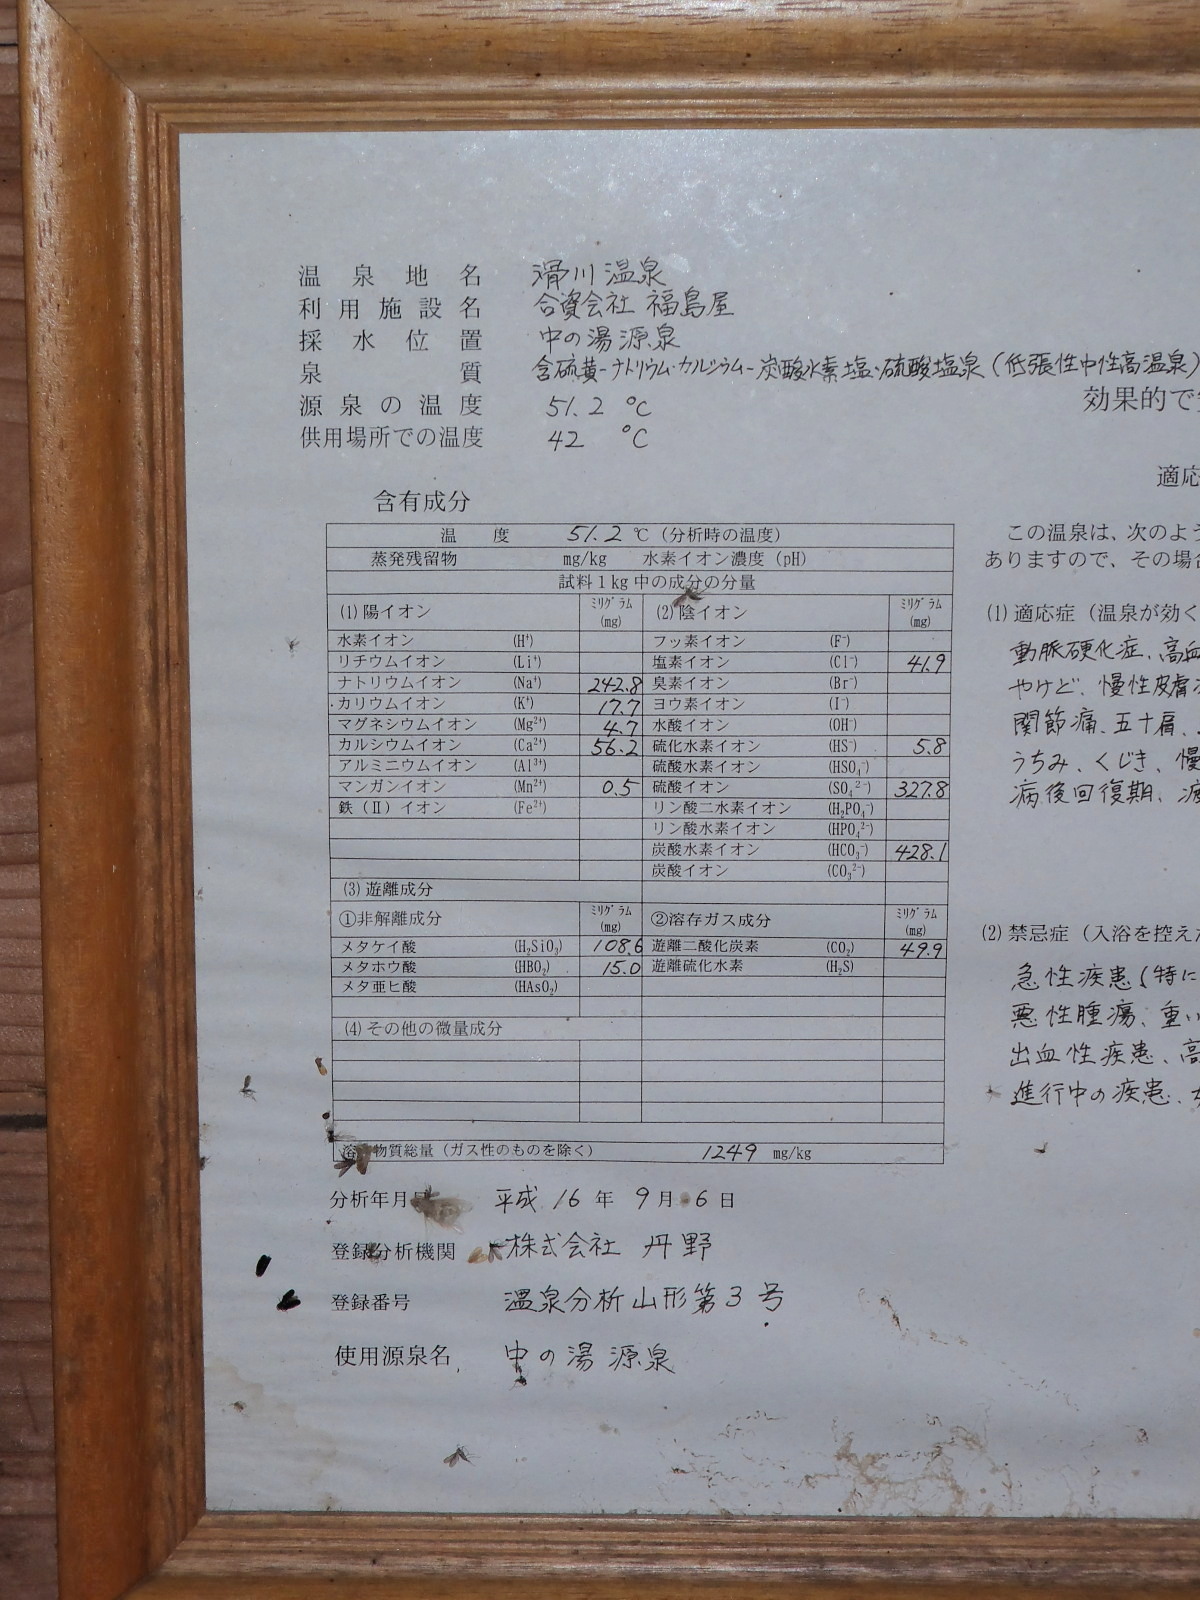 温泉地名 滑川温泉
利用施設名 合資会社 福島屋
採水位置 中の湯源泉
泉質 含硫黄-ナトリウム・カルシウム-炭酸水素塩・硫酸塩泉(低張性中性高温泉)
源泉の温度 51.2 ℃
供用場所での温度 42 ℃
効果的で
適応
含有成分
温度 51.2 ℃(分析時の温度)
蒸発残留物 mg/kg 水素イオン濃度(pH)
試料1kg中の成分の分量
(1)陽イオン ミリグラム(mg) (2)陰イオン ミリグラム(mg)
水素イオン (H⁺) フッ素イオン (F⁻)
リチウムイオン (Li⁺) 塩素イオン (Cl⁻) 41.9
ナトリウムイオン (Na⁺) 242.8 臭素イオン (Br⁻)
カリウムイオン (K⁺) 17.7 ヨウ素イオン (I⁻)
マグネシウムイオン (Mg²⁺) 4.7 水酸イオン (OH⁻)
カルシウムイオン (Ca²⁺) 56.2 硫化水素イオン (HS⁻) 5.8
アルミニウムイオン (Al³⁺) 硫酸水素イオン (HSO₄⁻)
マンガンイオン (Mn²⁺) 0.5 硫酸イオン (SO₄²⁻) 327.8
鉄(Ⅱ)イオン (Fe²⁺) リン酸二水素イオン (H₂PO₄⁻)
リン酸水素イオン (HPO₄²⁻)
炭酸水素イオン (HCO₃⁻) 428.1
炭酸イオン (CO₃²⁻)
(3)遊離成分
①非解離成分 ミリグラム(mg) ②溶存ガス成分 ミリグラム(mg)
メタケイ酸 (H₂SiO₃) 108.6 遊離二酸化炭素 (CO₂) 49.9
メタホウ酸 (HBO₂) 15.0 遊離硫化水素 (H₂S)
メタ亜ヒ酸 (HAsO₂)
(4)その他の微量成分
溶 物質総量(ガス性のものを除く) 1249 mg/kg
分析年月 平成 16 年 9 月 6 日
登録分析機関 株式会社 丹野
登録番号 温泉分析山形第3号
使用源泉名 中の湯源泉
この温泉は、次のよう
ありますので、その場合
(1)適応症(温泉が効く
動脈硬化症、高血
やけど、慢性皮膚
関節痛、五十肩、
うちみ、くじき、慢
病後回復期、
(2)禁忌症(入浴を控え
急性疾患(特に
悪性腫瘍、重い
出血性疾患、高
進行中の疾患、